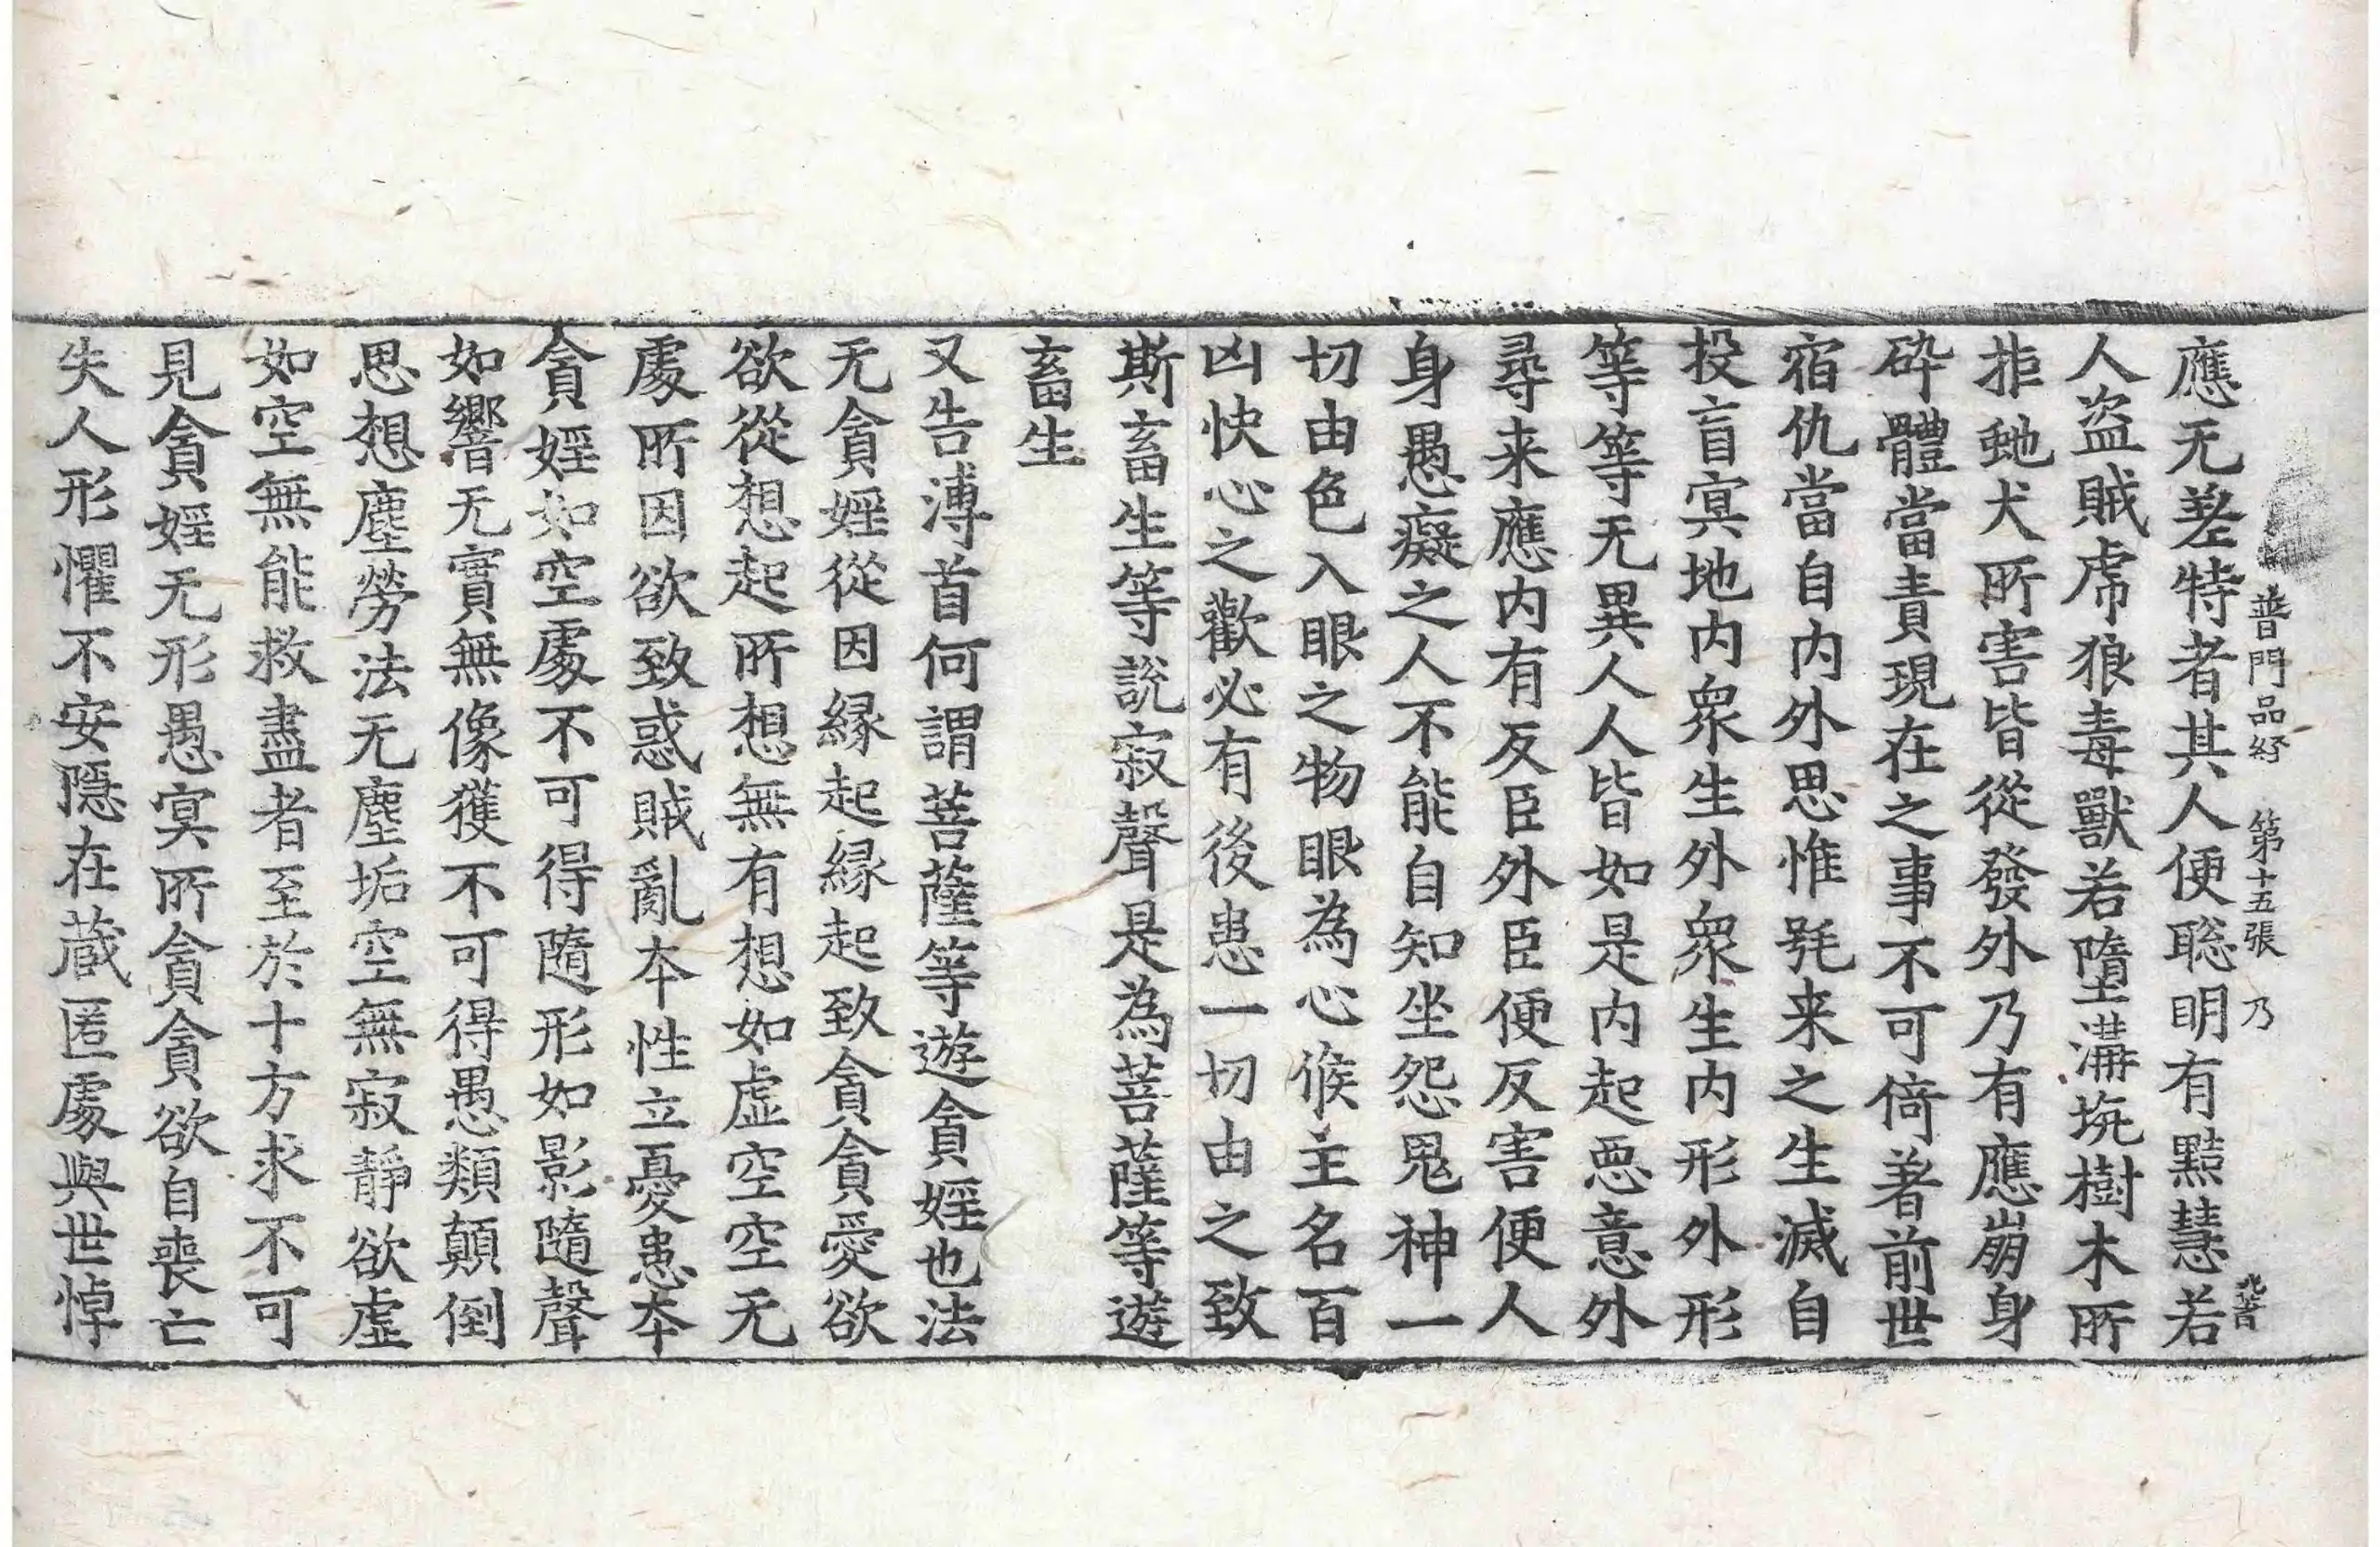 普門品經 第十五張 乃
應无差特者其人便聡明有黠慧若
人盜賊虎狼毒獸若墮溝坑樹木所
拒虵犬所害皆從發外乃有應崩身
碎體當責現在之事不可倚著前世
宿仇當自内外思惟毦来之生滅自
投盲冥地内衆生外衆生内形外形
等等等无異人人皆如是内起惡意外
尋来應内有反臣外臣便反害便人
身愚癡之人不能自知坐怨鬼神一
切由色入眼之物眼為心候主名百
凶快心之歡必有後患一切由之致
斯畜生等說寂聲是為菩薩等遊
畜生
又告溥首何謂菩薩等遊貪婬也法
无貪婬從因緣起緣起致貪貪愛欲
欲從想起所想無有想如虛空空无
處所因欲致惑賊亂本性立憂患本
貪婬如空處不可得隨形如影隨聲
如響无實無像獲不可得愚類顛倒
思想塵勞法无塵垢空無寂靜欲虛
如空無能救盡者至於十方求不可
見貪婬无形愚冥所貪貪欲自喪亡
失人形懼不安隱在蔵匿處與世悼